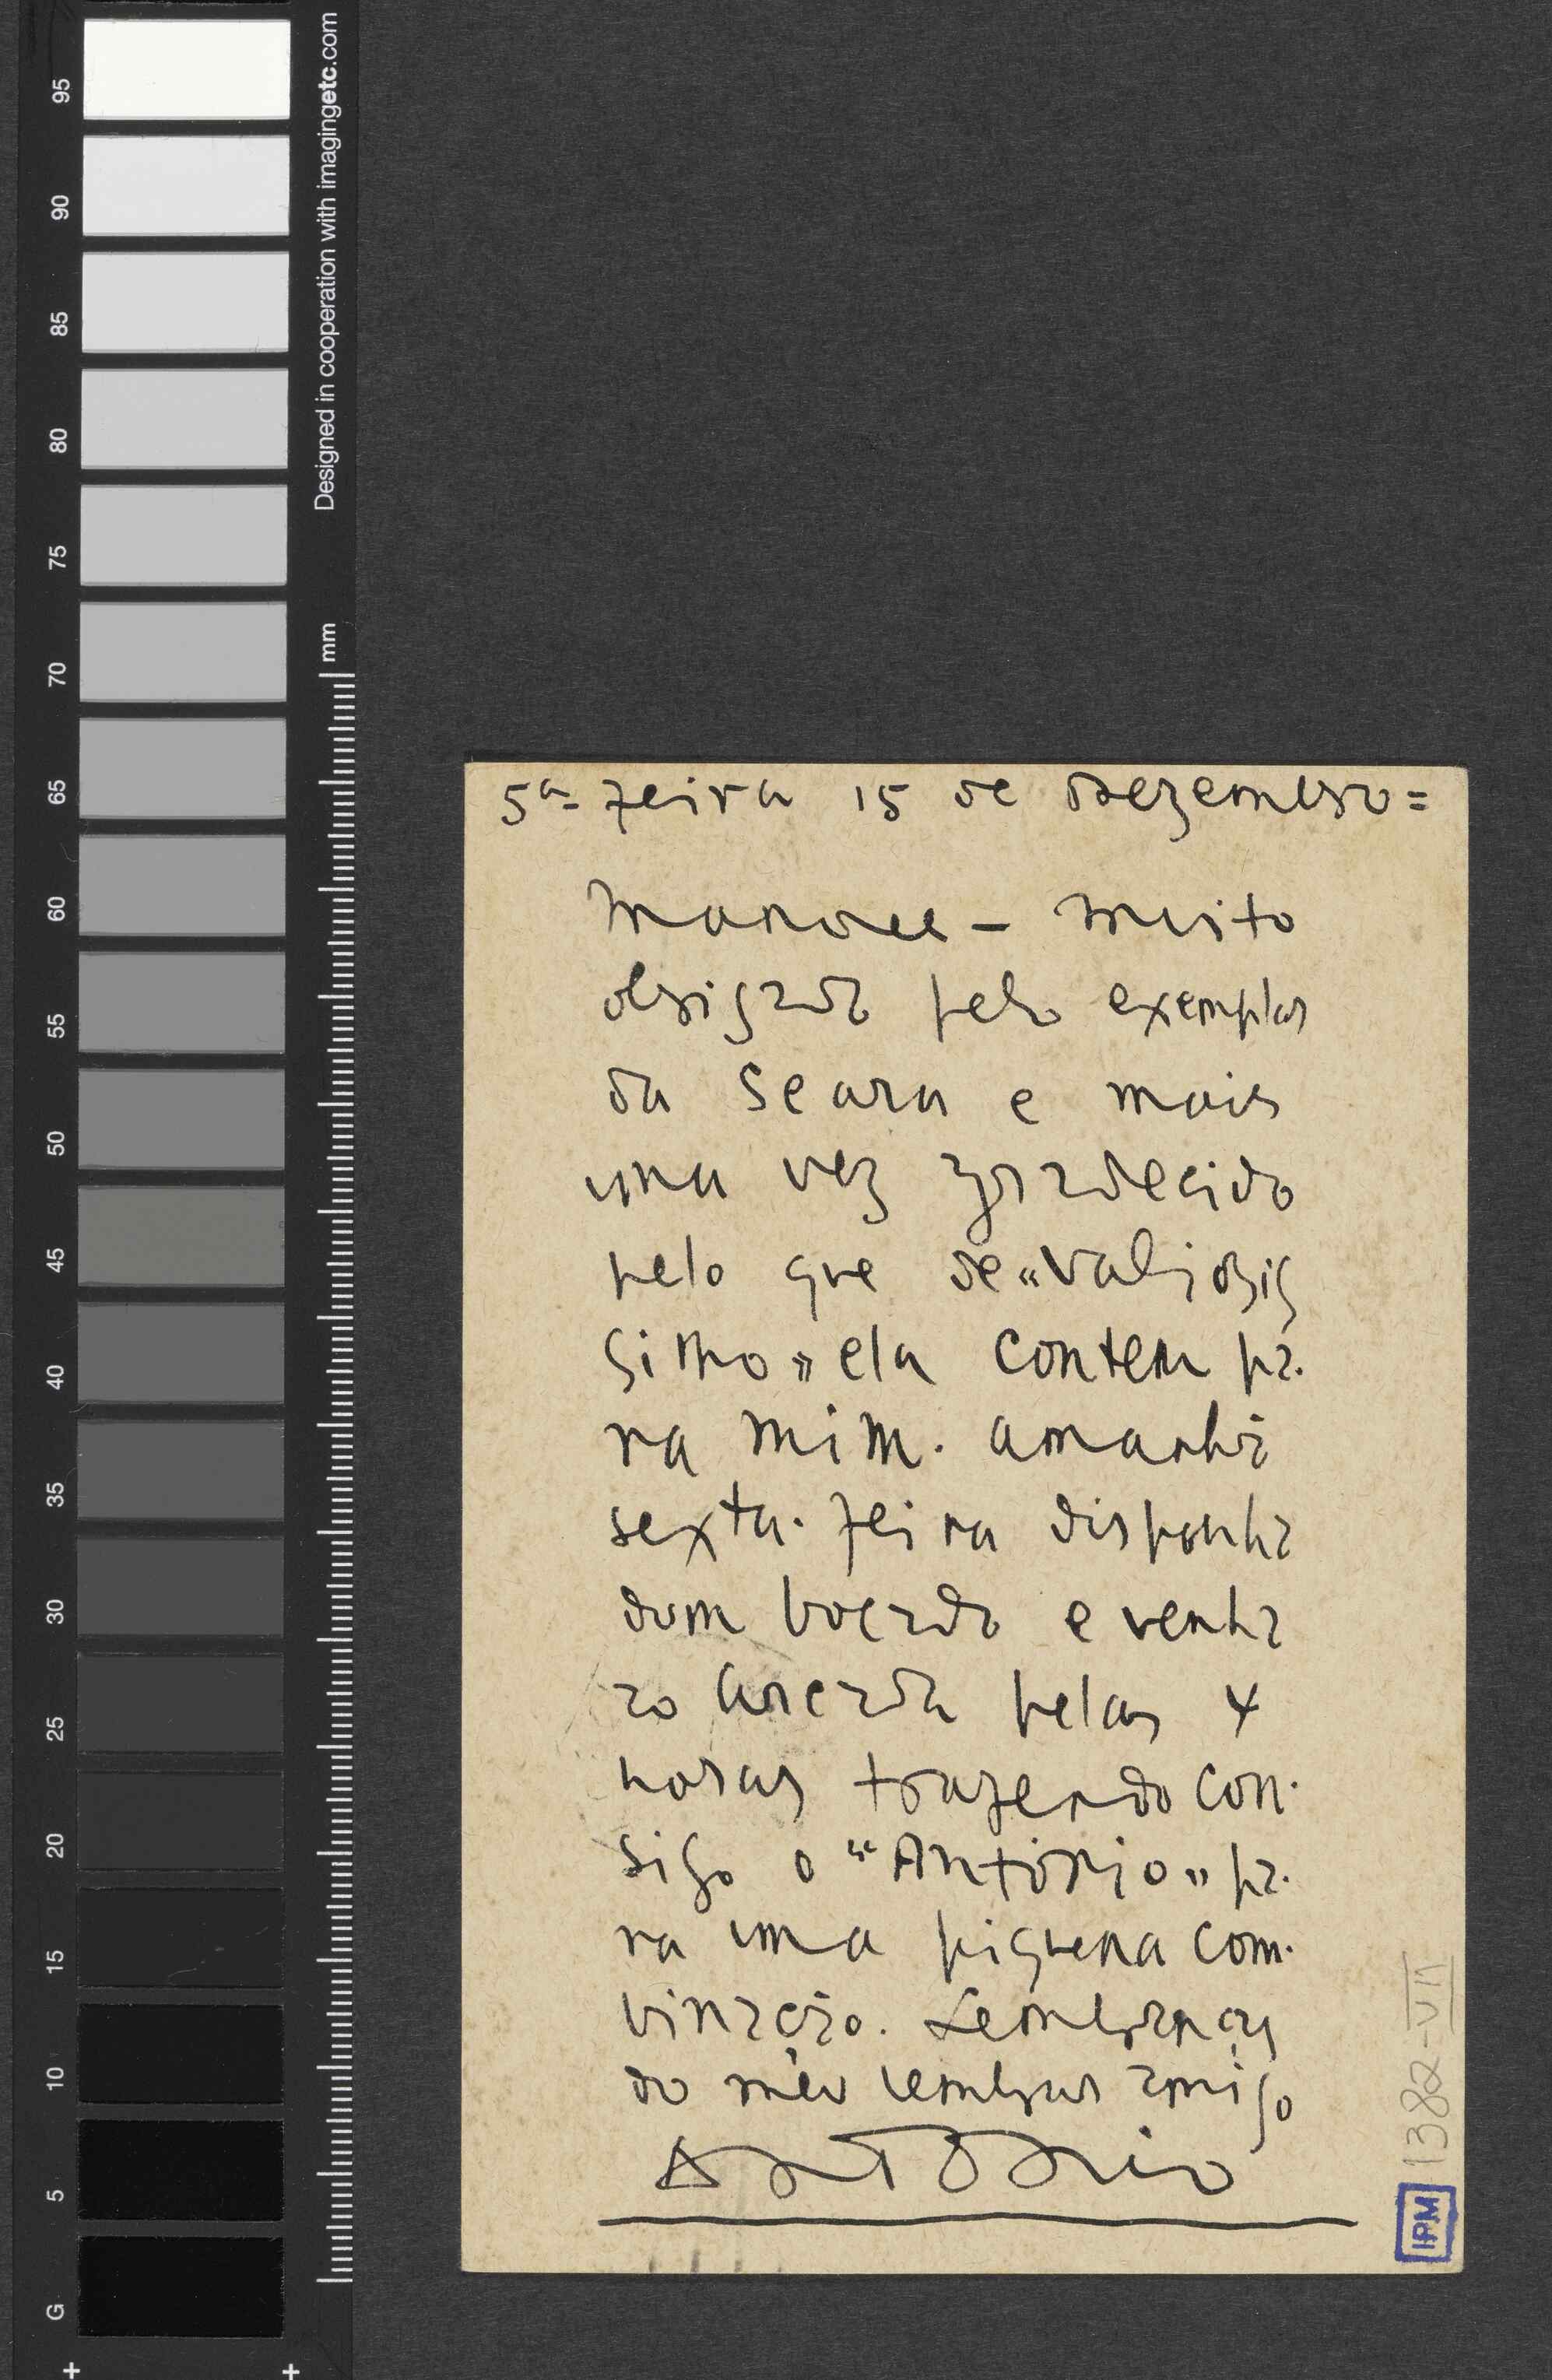 95
90
85
80
75
70
65
60
55
50
45
40
35
30
25
20
15
10
5
G
Designed in cooperation with imagingetc.com
mm
5ª= feira 15 de Dezembro=
Manoel – muito
obrigado pelo exemplar
da Seara e mais
uma vez agradecido
pelo que de «valiosis
simo» ela contem pa-
ra mim. amanhã
sexta-feira disponha
dum bocado e venha
ao
pelas 4
horas trazendo con-
sigo o «António» pa-
ra uma piquena com-
binação. Lembranças
do méu lembrar amigo
António
1382-VII
IPM